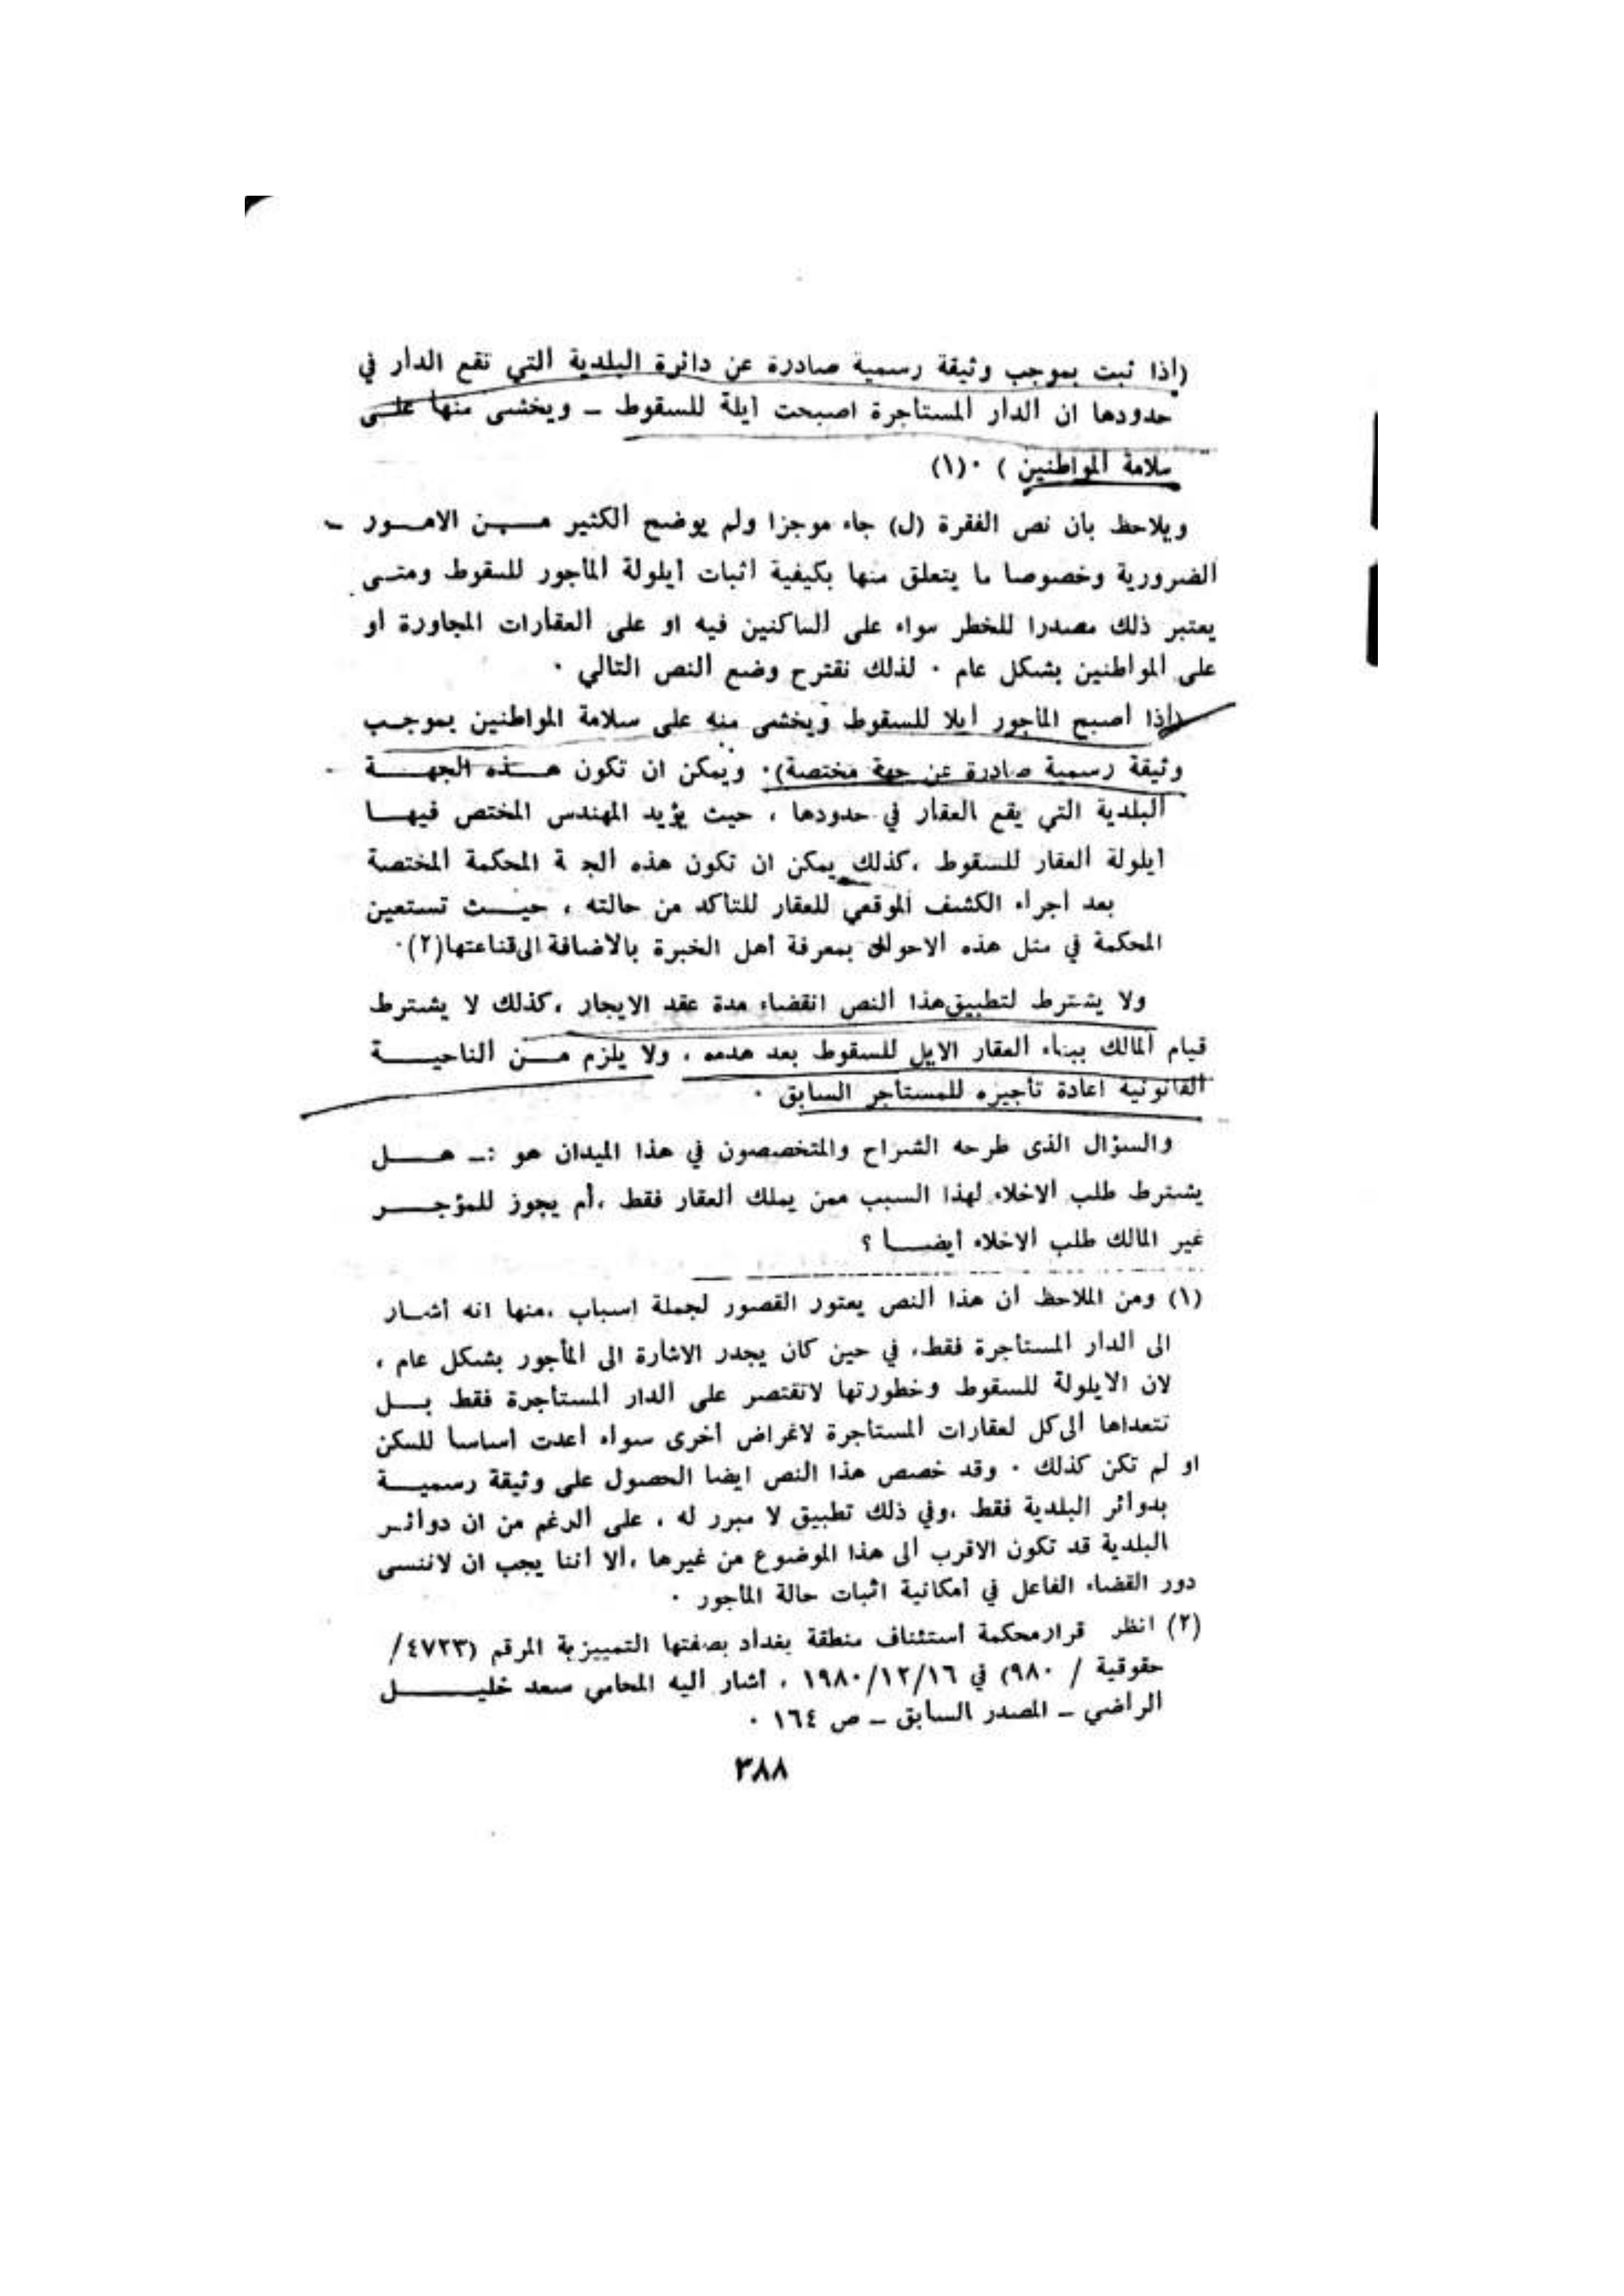 (إذا ثبت بموجب وثيقة رسمية صادرة عن دائرة البلدية التي تقع الدار في
حدودها ان الدار المستأجرة اصبحت آيلة للسقوط ـ ويخشى منها على
سلامة المواطنين ) ٠(١)
ويلاحظ بأن نص الفقرة (ل) جاء موجزا ولم يوضح الكثير من الامور
الضرورية وخصوصا ما يتعلق منها بكيفية اثبات أيلولة المأجور للسقوط ومتى
يعتبر ذلك مصدرا للخطر سواء على الساكنين فيه او على العقارات المجاورة أو
على المواطنين بشكل عام ٠ لذلك نقترح وضع النص التالي ٠
(إذا أصبح المأجور آيلا للسقوط ويخشى منه على سلامة المواطنين بموجب
وثيقة رسمية صادرة عن جهة مختصة)٠ ويمكن ان تكون هذه الجهة
البلدية التي يقع العقار في حدودها ، حيث يؤيد المهندس المختص فيها
أيلولة العقار للسقوط ،كذلك يمكن ان تكون هذه الجـ ة المحكمة المختصة
بعد اجراء الكشف الموقعي للعقار للتأكد من حالته ، حيث تستعين
المحكمة في مثل هذه الاحوال بمعرفة أهل الخبرة بالاضافة الى قناعتها(٢)٠
ولا يشترط لتطبيق هذا النص انقضاء مدة عقد الايجار ،كذلك لا يشترط
قيام المالك ببناء العقار الآيل للسقوط بعد هدمه ، ولا يلزم من الناحية
القانونية اعادة تأجيره للمستأجر السابق ٠
والسؤال الذى طرحه الشراح والمتخصصون في هذا الميدان هو :ـ هل
يشترط طلب الاخلاء لهذا السبب ممن يملك العقار فقط ،أم يجوز للمؤجر
غير المالك طلب الاخلاء أيضا ؟
(١) ومن الملاحظ أن هذا النص يعتور القصور لجملة اسباب ،منها انه أشار
الى الدار المستأجرة فقط، في حين كان يجدر الاشارة الى المأجور بشكل عام ،
لان الايلولة للسقوط وخطورتها لاتقتصر على الدار المستأجرة فقط بل
تتعداها الى كل لعقارات المستأجرة لاغراض أخرى سواء أعدت أساسا للسكن
او لم تكن كذلك ٠ وقد خصص هذا النص ايضا الحصول على وثيقة رسمية
بدوائر البلدية فقط ،وفي ذلك تطبيق لا مبرر له ، على الرغم من ان دوائر
البلدية قد تكون الاقرب الى هذا الموضوع من غيرها ،الا أننا يجب ان لاننسى
دور القضاء الفاعل في أمكانية اثبات حالة المأجور ٠
(٢) انظر قرار محكمة أستئناف منطقة بغداد بصفتها التمييزية المرقم (٤٧٢٣/
حقوقية / ٩٨٠) في ١٩٨٠/١٢/١٦ ، أشار اليه المحامي سعد خليل
الراضي ـ المصدر السابق ـ ص ١٦٤ ٠
٣٨٨